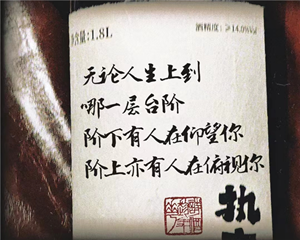 含量:1.8L
酒精度:≥14.0%Vol
无论人生上到
哪一层台阶
阶下有人在仰望你
阶上亦有人在俯视你
执